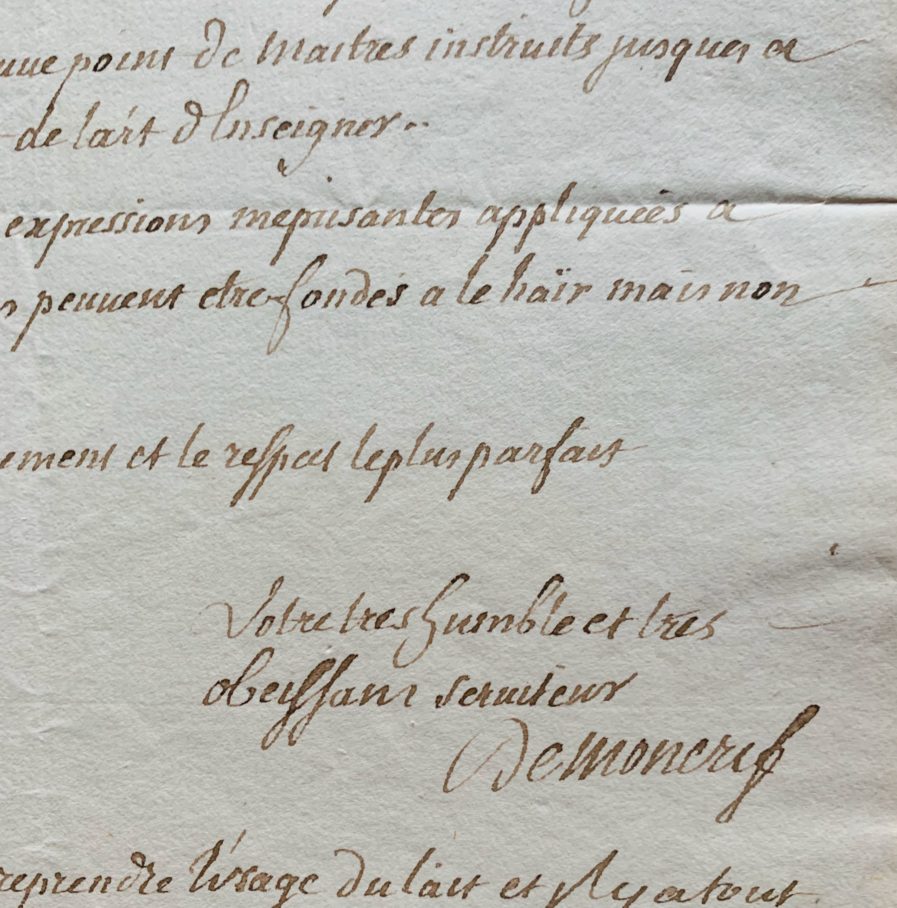 point de maitres instruits jusques a
de lart d'Enseigner..
expressions meprisantes appliquées a
peuvent etre fondés a le haïr mais non
ement et le respect le plus parfait
Votre tres humble et tres
obeissant serviteur
De moncrif
reprendre l'usage du lait et il y a tout